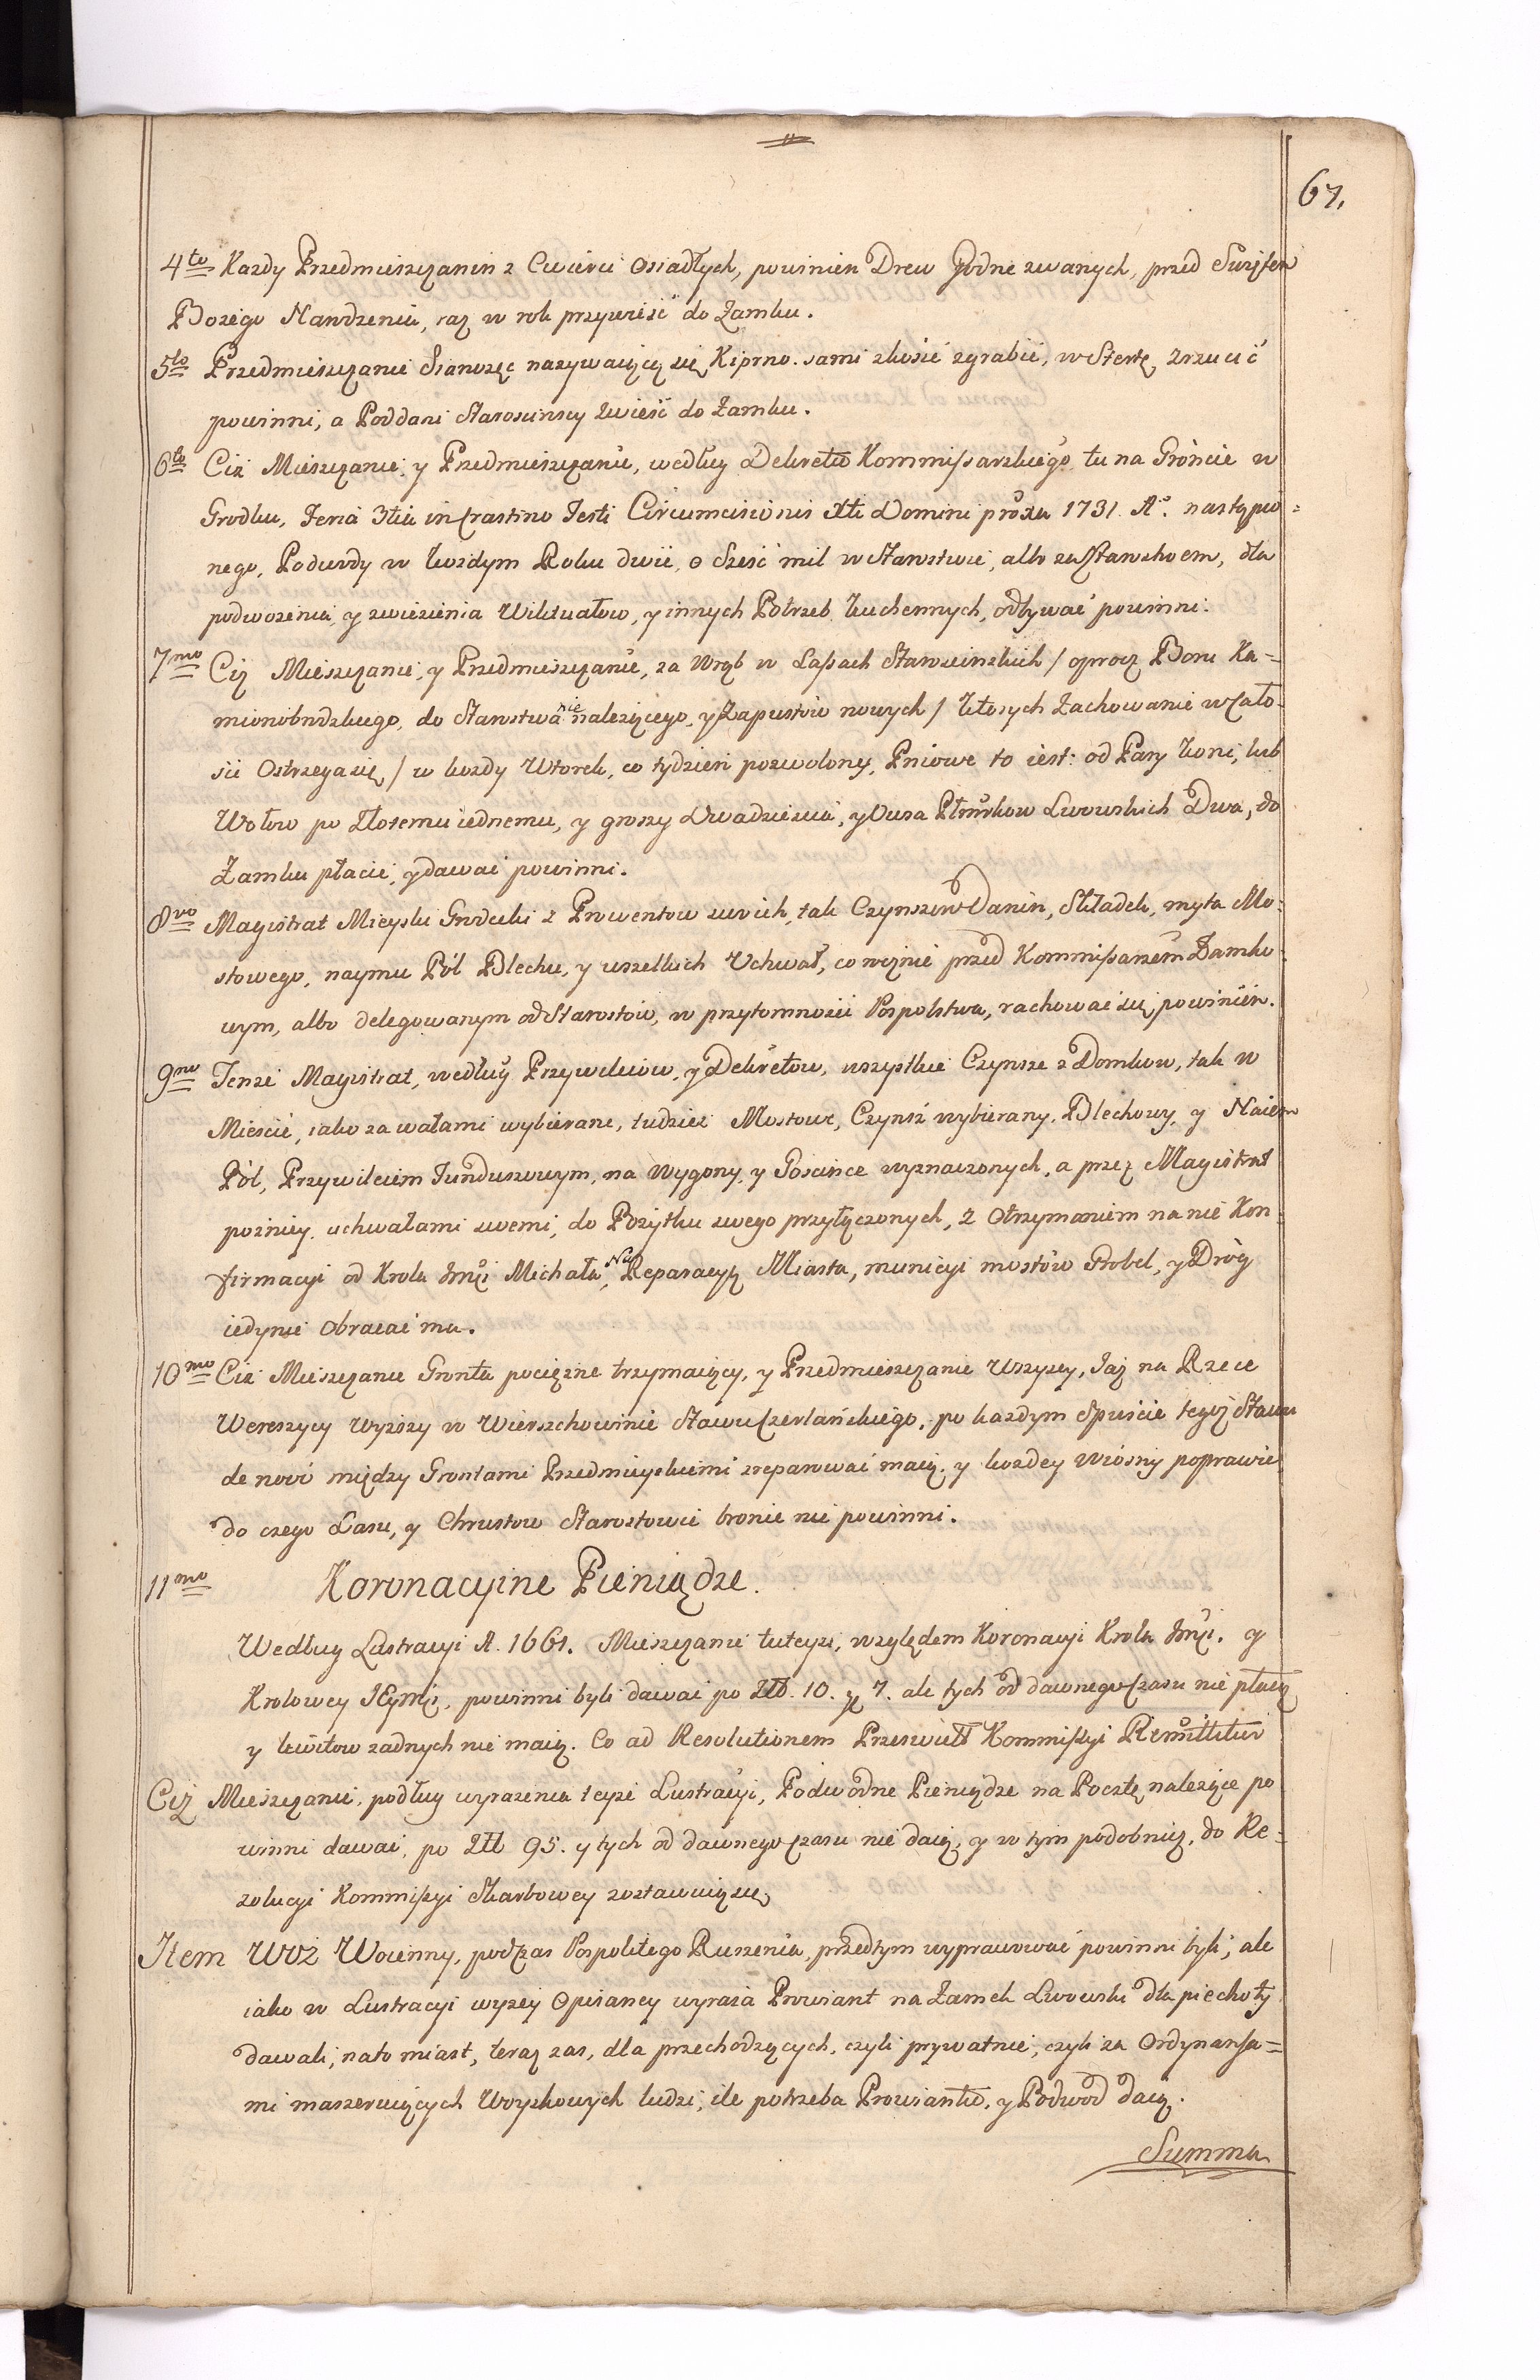 67.
4to Kazdy Przedmieszczanin z Cwierci Osiadłych, powinien Drew Godne zwanych, przed Swiętem
Bozego Narodzenia, raz w rok przywieść do Zamku.
5to Przedmieszczanie Sianozęc nazywaiącą się Kiprno. sami zkosić zgrabić, w Stertę zrzucić
powinni, a Poddani Starościnscy zwieść do Zamku.
6to Ciż Mieszczanie, y Przedmieszczanie, według Dekretu Kommissarskiego tu na Gróncie w
Grodku, Feria 3tia in Crastino Festi Circumcisionis Xti Domini proxa 1731. Ao. nastąpio=
nego, Podwody w kozdym Roku dwie, o Sześć mil w Starostwie, albo za Starostwem, dla
podwozenia, y zwiezienia Wiktuałow, y innych Potrzeb kuchennych, odbywać powinni.
7mo Ciż Mieszczanie, y Przedmieszczanie, za Wrąb w Lasach Starościnskich / oprocz Boru Ka=
mionobrodzkiego, do Starostwa nie nalezącego, y Zapustów nowych / ktorych Zachowanie w Cało-
sci Ostrzega się / w kozdy Wtorek, co tydzien pozwolony, Pniowe to iest: od Pary koni, lub
Wołow po Złotemu iednemu, y groszy Dwadziescia, y Owsa Płmiarkow Lwowskich Dwa, do
Zamku płacić, y dawać powinni.
8vo Magistrat Mieyski Grodecki z Prowentow swoich, tak Czynszow Danin, Składek, myta Mo-
stowego, naymu Pól Blechu, y wszelkich Uchwał, co rocznie przed Kommissarzem Zamko-
wym, albo delegowanym od Starostów, w przytomności Pospolstwa, rachować się powinien.
9no Tenze Magistrat, według Przywileiow, y Dekretow, wszystkie Czynsze z Domkow, tak w
Mieście, iako za wałami wybierane, tudziez Mostowe, Czynsz wybierany, Blechowy, y Naiem
Pól, Przywileiem Funduszowym, na Wygony, y Goscince wyznaczonych, a przez Magistrat
pozniey uchwałami swemi, do Pozytku swego przyłączonych, z Otrzymaniem na nie Kon-
firmacyi od Krola Jmci Michała, Na Reparacyą Miasta, municyi mostów Grobel, y Dróg
iedynie obracać ma.
10mo Ciż Mieszczanie Gronta pociężne trzymaiący, y Przedmieszczanie Wszyscy, Jaz na Rzece
Wereszycy Wyższy w Wierzchowinie Stawu Czerlańskiego, po kazdym Spuście tegoż Stawu
de novo między Grontami Przedmieyskiemi zreparować maią, y kozdey Wiosny poprawić,
do czego Lasu, y Chrustow Starostowie bronić nie powinni.
11mo Koronacyine Pieniądze.
Według Lustracyi A. 1661. Mieszczanie tuteysi, względem Koronacyi Krola Jmci. y
Krolowey JEymci, powinni byli dawać po Złł. 10. y 7. ale tych od dawnego Czasu nie płacą
y kwitow zadnych nie maią. Co ad Resolutionem Przeświett Kommissyi Remittitur
Ciż Mieszczanie, podług wyrazenia teyze Lustracyi, Podwodne Pieniądze na Pocztę nalezące po
winni dawać, po Złł 95. y tych od dawnego Czasu nie daią, y w tym podobnież, do Re=
zolucyi Kommissyi Skarbowey zostawuią się,
Item Wóz Woienny, podczas Pospolitego Ruszenia, przedtym wyprawować powinni byli, ale
iako w Lustracyi wyzey Opisaney wyraza Prowiant na Zamek Lwowski dla piechoty
dawali, nato miast, teraz zas, dla przechodzących, czyli prywatnie, czyli za Ordynansa=
mi maszeruiących Woyskowych ludzi, ile potrzeba Prowiantu, y Podwod daią.
Summa